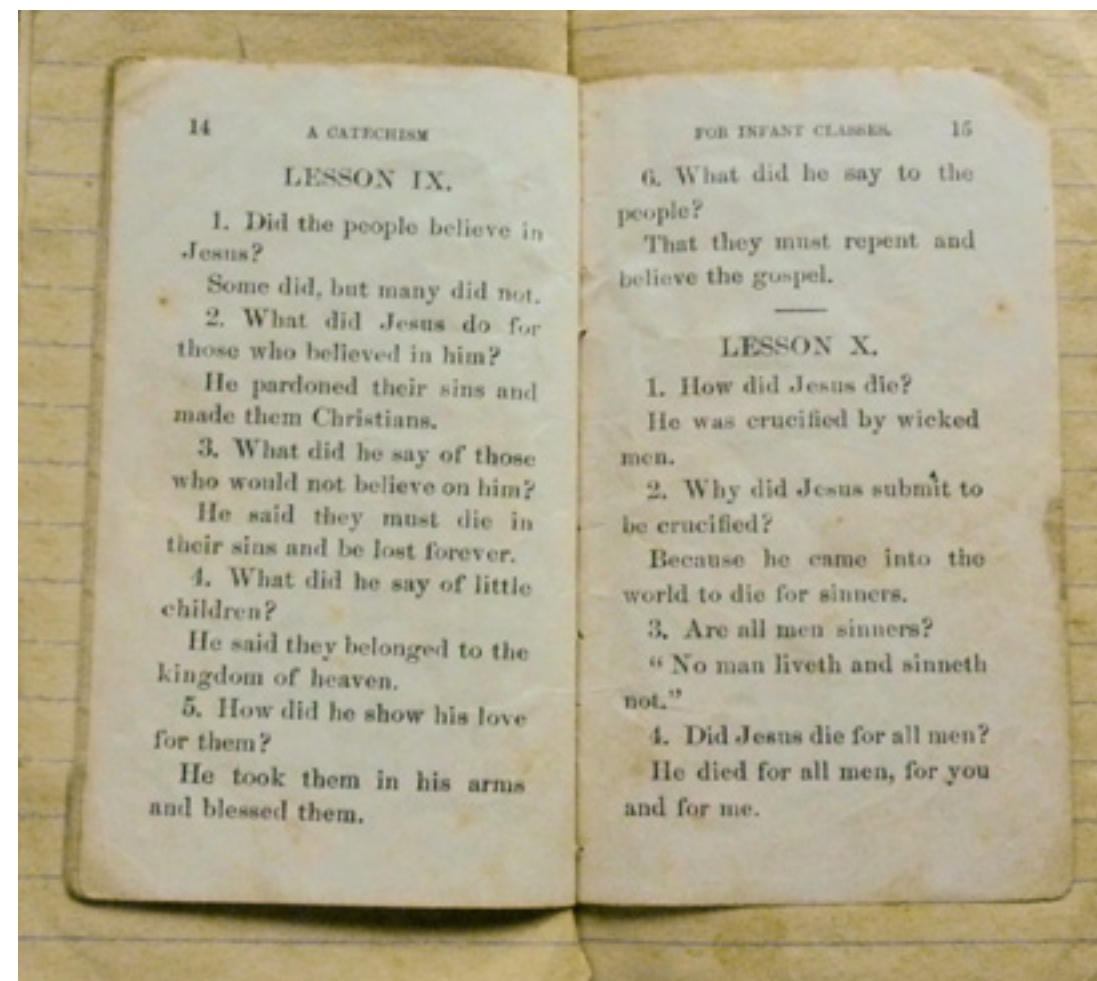 14 A CATECHISM
LESSON IX.
1. Did the people believe in
Jesus?
Some did, but many did not.
2. What did Jesus do for
those who believed in him?
He pardoned their sins and
made them Christians.
3. What did he say of those
who would not believe on him?
He said they must die in
their sins and be lost forever.
4. What did he say of little
children?
He said they belonged to the
kingdom of heaven.
5. How did he show his love
for them?
He took them in his arms
and blessed them.
FOR INFANT CLASSES. 15
6. What did he say to the
people?
That they must repent and
believe the gospel.
LESSON X.
1. How did Jesus die?
He was crucified by wicked
men.
2. Why did Jesus submit to
be crucified?
Because he came into the
world to die for sinners.
3. Are all men sinners?
“ No man liveth and sinneth
not.”
4. Did Jesus die for all men?
He died for all men, for you
and for me.